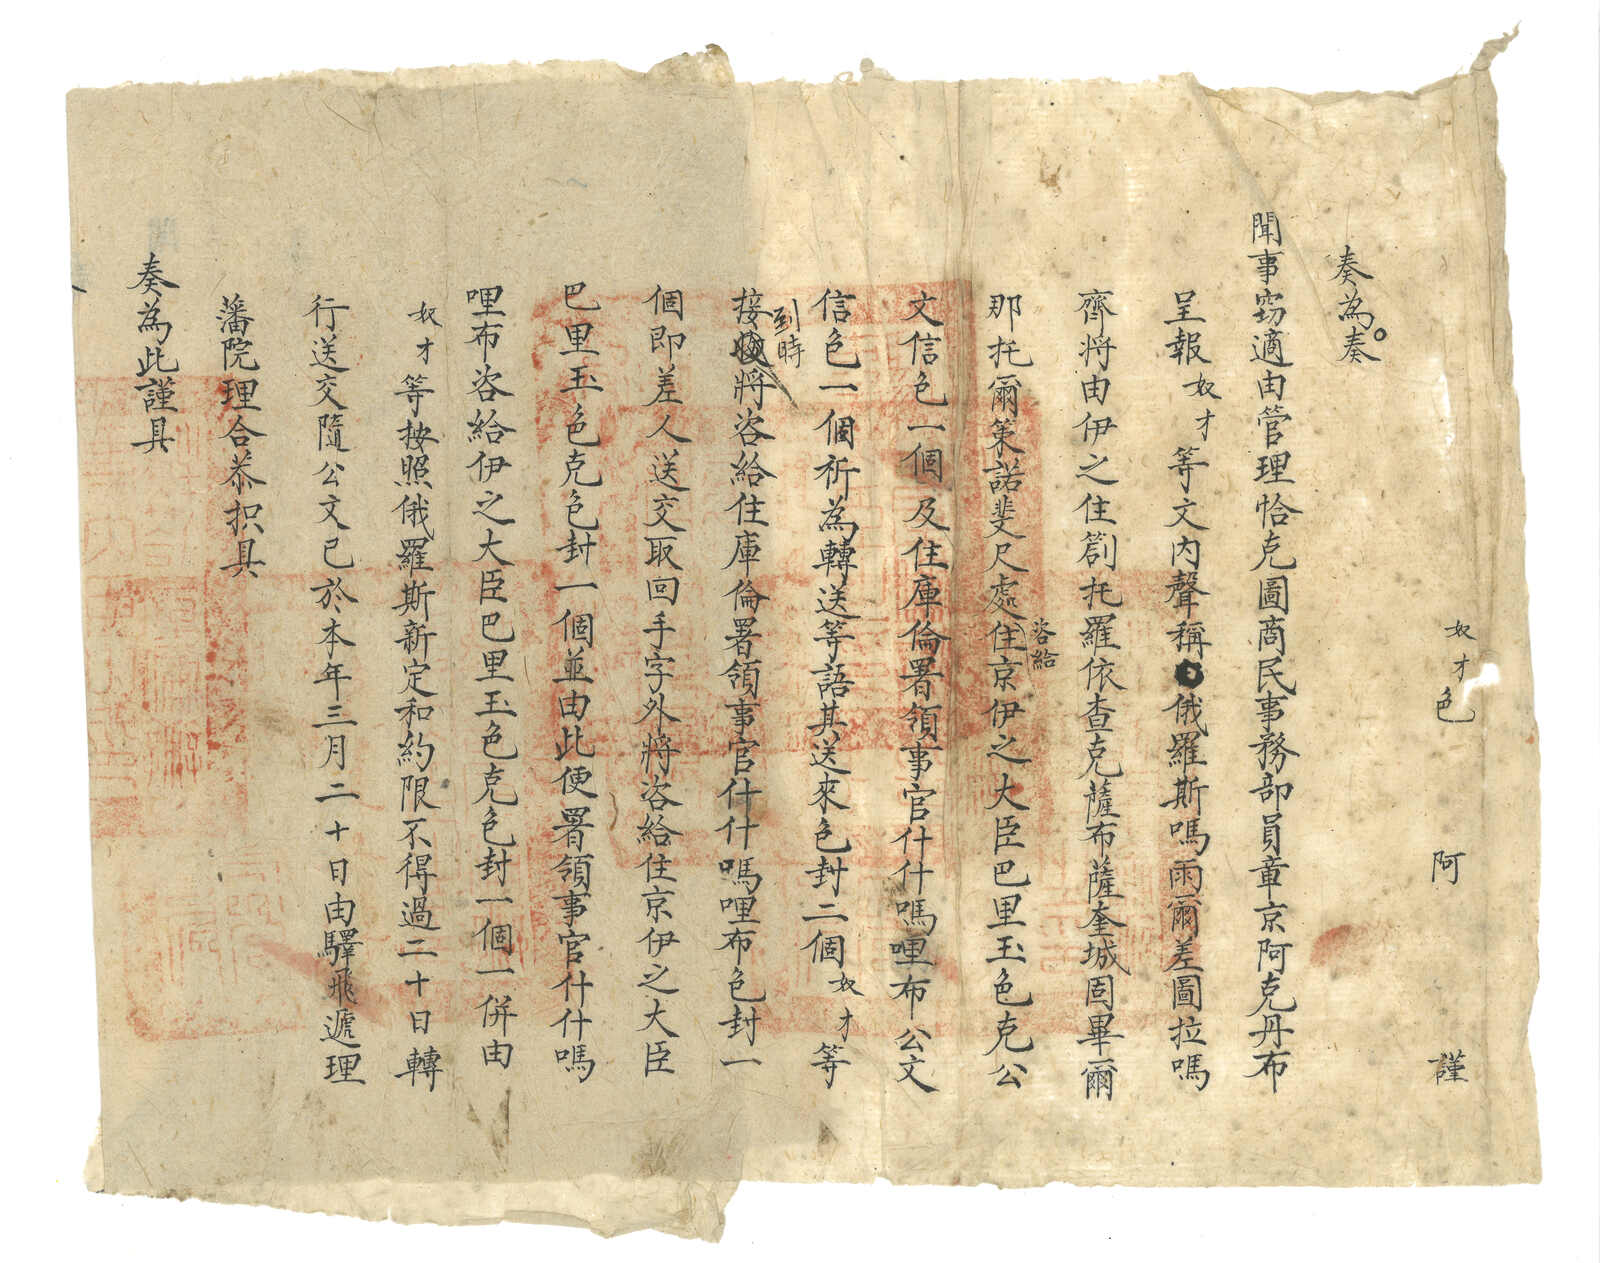 奴才色 阿 謹
奏為奏
聞事窃適由管理恰克圖商民事務部員章京阿克丹布
呈報奴才等文內聲稱俄羅斯嗎雨爾差圖拉嗎
齊將由伊之住劄托羅依查克薩布薩奎城固畢爾
咨給
那托爾策諾斐尺處住京伊之大臣巴里玉色克公
文信色一個及住庫倫署領事官什什嗎哩布公文
信色一個祈為轉送等語其送來色封二個奴才等
到時
接將咨給住庫倫署領事官什什嗎哩布色封一
個即差人送交取回手字外將咨給住京伊之大臣
巴里玉色克色封一個並由此便署領事官什什嗎
哩布咨給伊之大臣巴里玉色克色封一個一併由
奴才等按照俄羅斯新定和約限不得過二十日轉
行送交隨公文已於本年三月二十日由驛飛遞理
藩院理合恭摺具
奏為此謹具